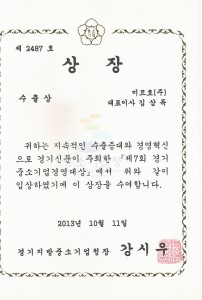 제 2487 호
상 장
수출상
미르호(주)
대표이사 김상목
귀하는 지속적인 수출증대와 경영혁신
으로 경기신문이 주최한 「제7회 경기
중소기업경영대상」에서 위와 같이
입상하였기에 이 상장을 수여합니다.
2013년 10월 11일
경기지방중소기업청장 강시우